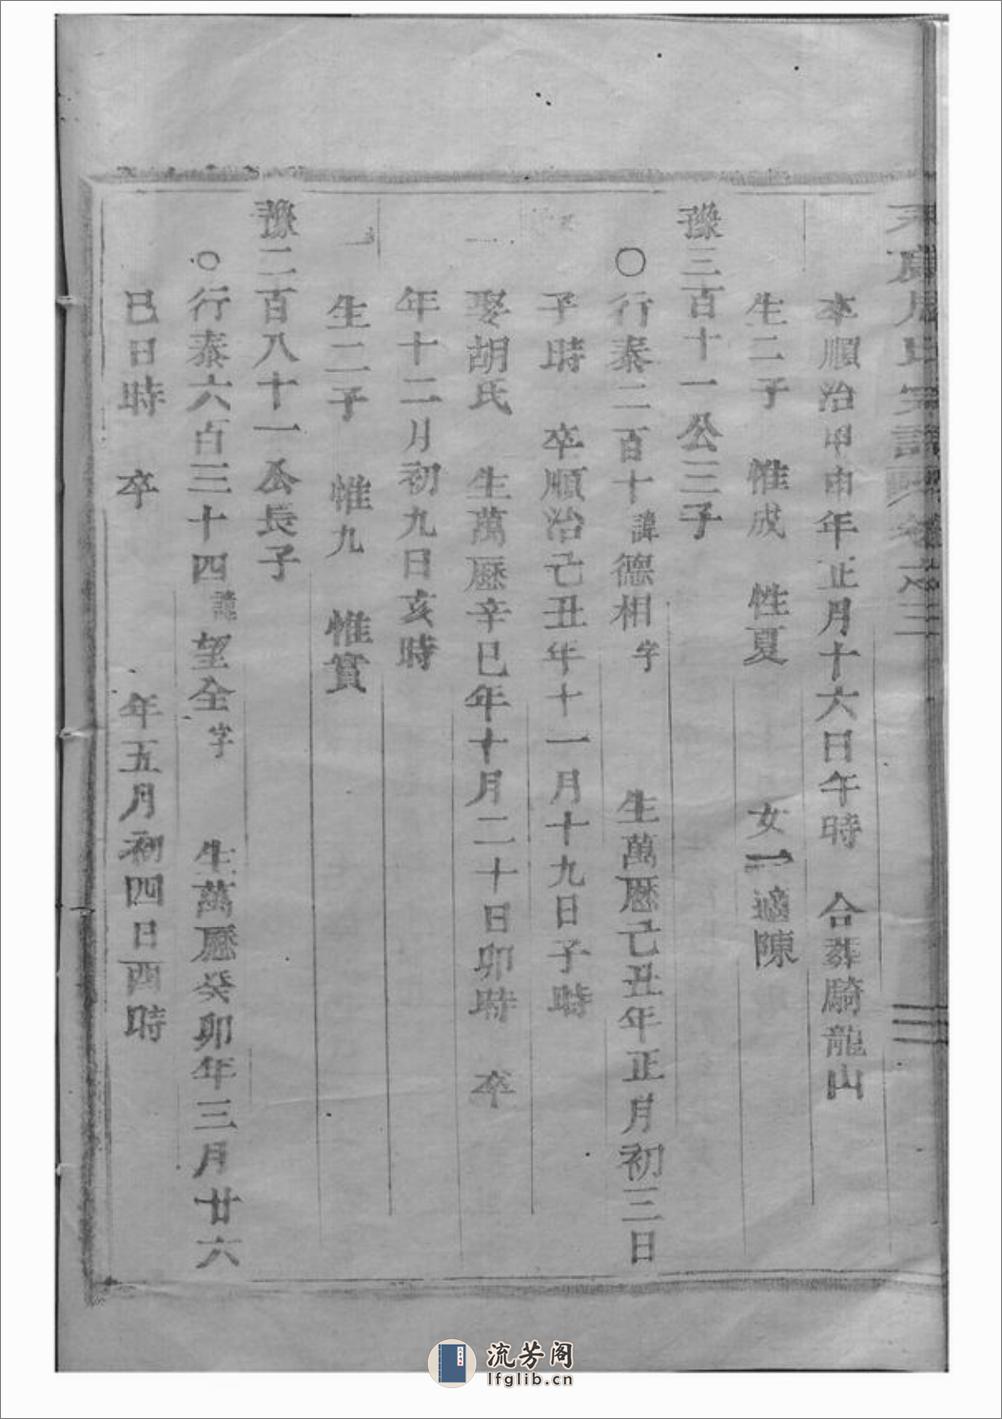 周氏宗譜 卷之三
卒順治甲申年正月十六日午時 合葬騎龍山
生二子 惟成 性夏 女一適陳
豫三百十一公三子
○行泰二百十諱德相字 生萬曆己丑年正月初三日
子時 卒順治己丑年十一月十九日子時
娶胡氏 生萬曆辛巳年十月二十日卯時 卒
年十二月初九日亥時
生二子 惟九 惟賓
豫二百八十一公長子
○行泰六百三十四諱望全字 生萬曆癸卯年三月廿六
巳日時 卒 年五月初四日酉時
流芳阁
lfglib.cn